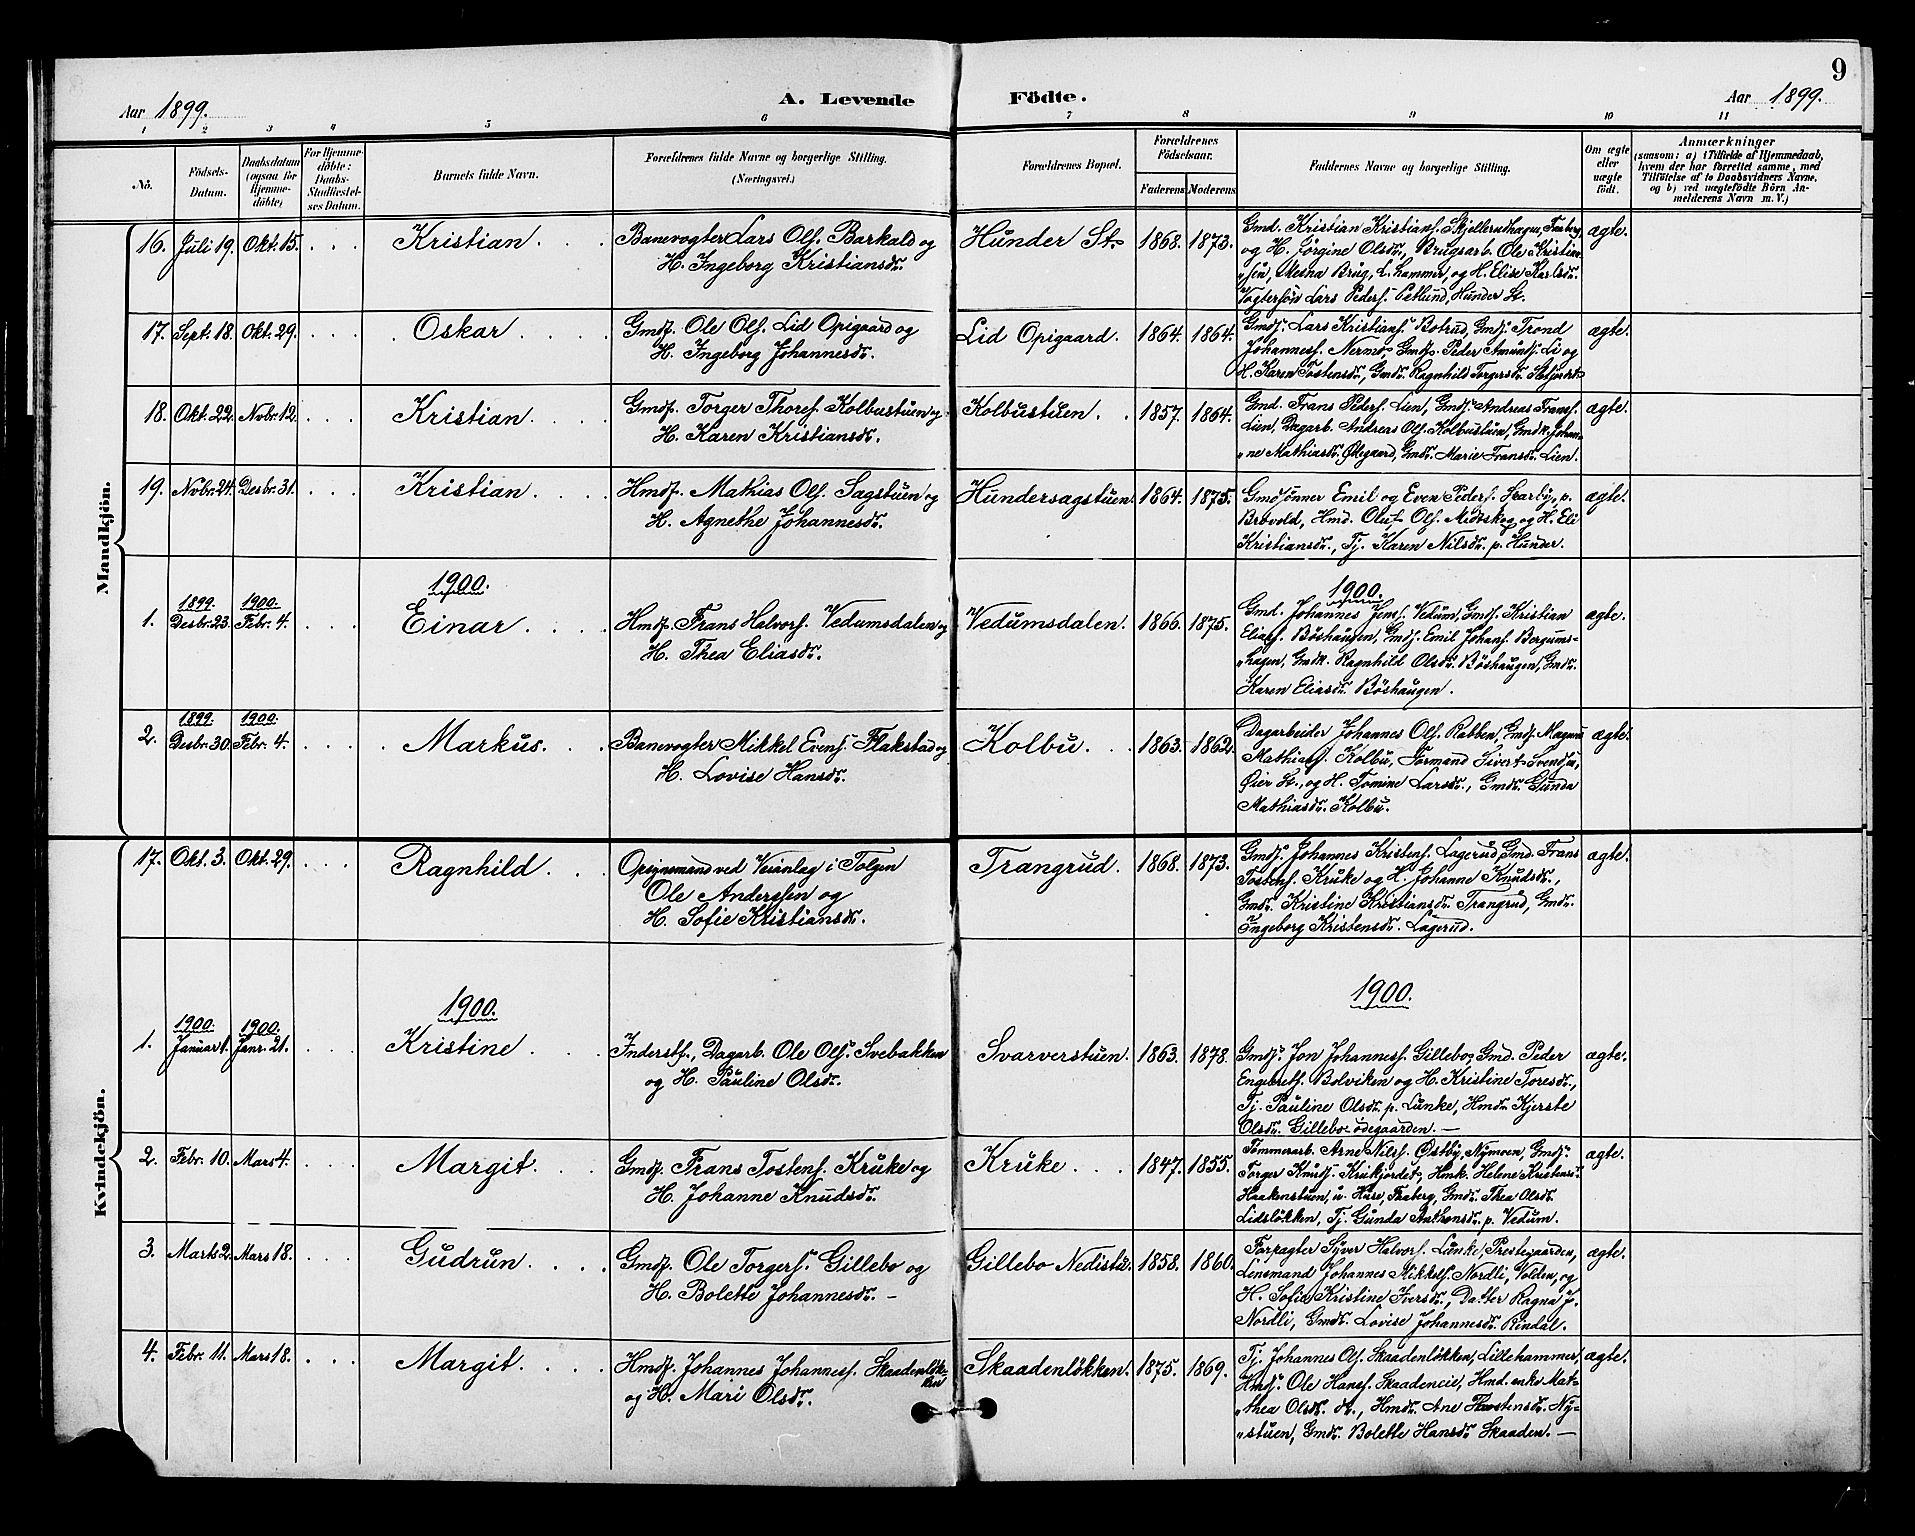 9
Aar 1899.
A. Levende Födte.
Aar 1899.
1 2 3 4 5 6 7 8 9 10 11
No.
Födsels-
Datum.
Daabsdatum
(ogsaa for
Hjemme-
döbte)
For Hjemme-
döbte:
Daabs-
Stadfæstel-
ses Datum.
Barnets fulde Navn.
Forældrenes fulde Navne og borgerlige Stilling.
(Næringsvei.)
Forældrenes Bopæl.
Forældrenes
Födselsaar.
Faderens Moderens
Faddernes Navne og borgerlige Stilling.
Om ægte
eller
uægte
födt.
Anmærkninger
(saasom: a) i Tilfælde af Hjemmedaab,
hvem der har forrettet samme, med
Tilföielse af to Daabsvidners Navne,
og b) ved uægtefödte Börn An-
melderens Navn m. V.)
Mandkjön.
16. Juli 19. Okt. 15. . . . Kristian . . .
Banevogter Lars Ols. Barkald og
H. Ingeborg Kristiansdr.
Hunder St. 1868. 1873.
Gmd. Kristian Kristians. Skjellerudhagen, Faaberg
og H. Jørgine Olsdr., Brugsarb. Ole Kristian-
"sen, Mesna Brug, L.hammer, og H. Elise Karlsdr.
Vogtersøn Lars Peders. Petlund, Hunder St.
ægte.
17. Sept. 18. Okt. 29. . . . Oskar . . .
Gmds. Ole Ols. Lid Opigaard og
H. Ingeborg Johannesdr.
Lid Opigaard. 1864. 1864.
Gmds. Lars Kristians. Botrud, Gmds. Trond
Johanness. Nermo, Gmds. Peder Amunds. Li og
H. Karen Tostensdr., Gmdr. Ragnhild Torgersdr.
ægte.
18. Okt. 22. Novbr. 12. . . . Kristian . . .
Gmds. Torger Thores. Kolbustuen og
H. Karen Kristiansdr.
Kolbustuen. 1857. 1864.
Gmd. Frans Peders. Lien, Gmds. Andreas Frans.
Lien, Dagarb. Andreas Ols. Kolbustuen, Gmdk. Johan-
"ne Mathiasdr. Ødegaard, Gmdr. Marie Fransdr. Lien.
ægte.
19. Novbr. 24. Desbr. 31. . . . Kristian . . .
Hmds. Mathias Ols. Sagstuen og
H. Agnethe Johannesdr.
Hundersagstuen. 1864. 1875.
Gmdsønner Emil og Even Peders. Skarby, p.
Brovold, Hmd. Oluf Ols. Midtskog og H. Eli
Kristiansdr., Tj. Karen Nilsdr. p. Hunder.
ægte.
1900.
1900.
1. 1899. Desbr. 23. 1900. Febr. 4. . . . Einar . . .
Hmds. Frans Halvors. Vedumsdalen og
H. Thea Eliasdr.
Vedumsdalen. 1866. 1875.
Gmd. Johannes Jens. Vedum, Gmds. Kristian
Elias. Böshaugen, Gmds. Emil Johans. Bergums-
"hagen, Gmdk. Ragnhild Olsdr. Böshaugen, Gmdr.
Karen Eliasdr. Böshaugen.
ægte.
2. 1899. Desbr. 30. 1900. Febr. 4. . . . Markus. . .
Banevogter Mikkel Evens. Flakstad og
H. Lovise Hansdr.
Kolbu . . 1863. 1862.
Dagarbeider Johannes Ols. Rabben, Gmds. Magnus
Mathias. Kolbu, Formand Sivert Svendsen,
Øier St., og H. Tomine Larsdr., Gmdr. Gunda
Mathiasdr. Kolbu.
ægte.
Kvindekjön.
17. Okt. 3. Okt. 29. . . . Ragnhild . . .
Opsynsmand ved Veianlæg i Tolgen
Ole Anderssen og
H. Sofie Kristiansdr.
Trangrud. 1868. 1873.
Gmds. Johannes Kristens. Lagerud, Gmd. Frans
Tostens. Kruke og H. Johanne Knudsdr.,
Gmdr. Kristine Kristiansdr. Trangrud, Gmdr.
Ingeborg Kristensdr. Lagerud.
ægte.
1900.
1900.
1. 1900. Januar 1. 1900. Janr. 21. . . . Kristine . . .
Inderstf., Dagarb. Ole Ols. Svebakken
og H. Pauline Olsdr.
Svarverstuen. 1863. 1878.
Gmds. Jon Johanness. Gillebo, Gmd. Peder
Engebrets. Bolviken og H. Kristine Toresdr.,
Tj. Pauline Olsdr. p. Lunke, Hmdr. Kjerste
Olsdr. Gillebo-ødegaarden. —
ægte.
2. Febr. 10. Mars 4. . . . Margit. . .
Gmds. Frans Tostens. Kruke og
H. Johanne Knudsdr.
Kruke . . . 1847. 1855.
Tømmerarb. Arne Nils. Østby, Nymoen, Gmds.
Torger Knuds. Krukjordet, Hmk. Helene Kristensdr.
Haakenstuen, u. Huse, Faaberg, Gmdr. Thea Olsdr.
Lidsløkken, Tj. Gunda Anthonsdr. p. Vedum.
ægte.
3. Marts 2. Mars 18. . . . Gudrun . . .
Gmds. Ole Torgers. Gillebo og
H. Bolette Johannesdr. —
Gillebo Nedistu. 1858. 1860.
Forpagter Syver Halvors. Lunke, Prestegaarden,
Lensmand Johannes Mikkels. Nordli, Volden, og
H. Sofie Kristine Iversdr., Datter Ragna J.
Nordli, Gmdr. Lovise Johannesdr. Rindal.
ægte.
4. Febr. 11. Mars 18. . . . Margit . . .
Hmds. Johannes Johanness. Skaadenløk-
ken
og H. Mari Olsdr.
Skaadenløkken. 1875. 1869.
Tj. Johannes Ols. Skaadenløkken, Lillehammer,
Hmds. Ole Hans. Skaadeneie, Hmd.enke Mat-
"thea Olsdr. do., Hmdr. Ane Torstensdr. Ny-
"stuen, Gmdr. Bolette Hansdr. Skaaden. —
ægte.